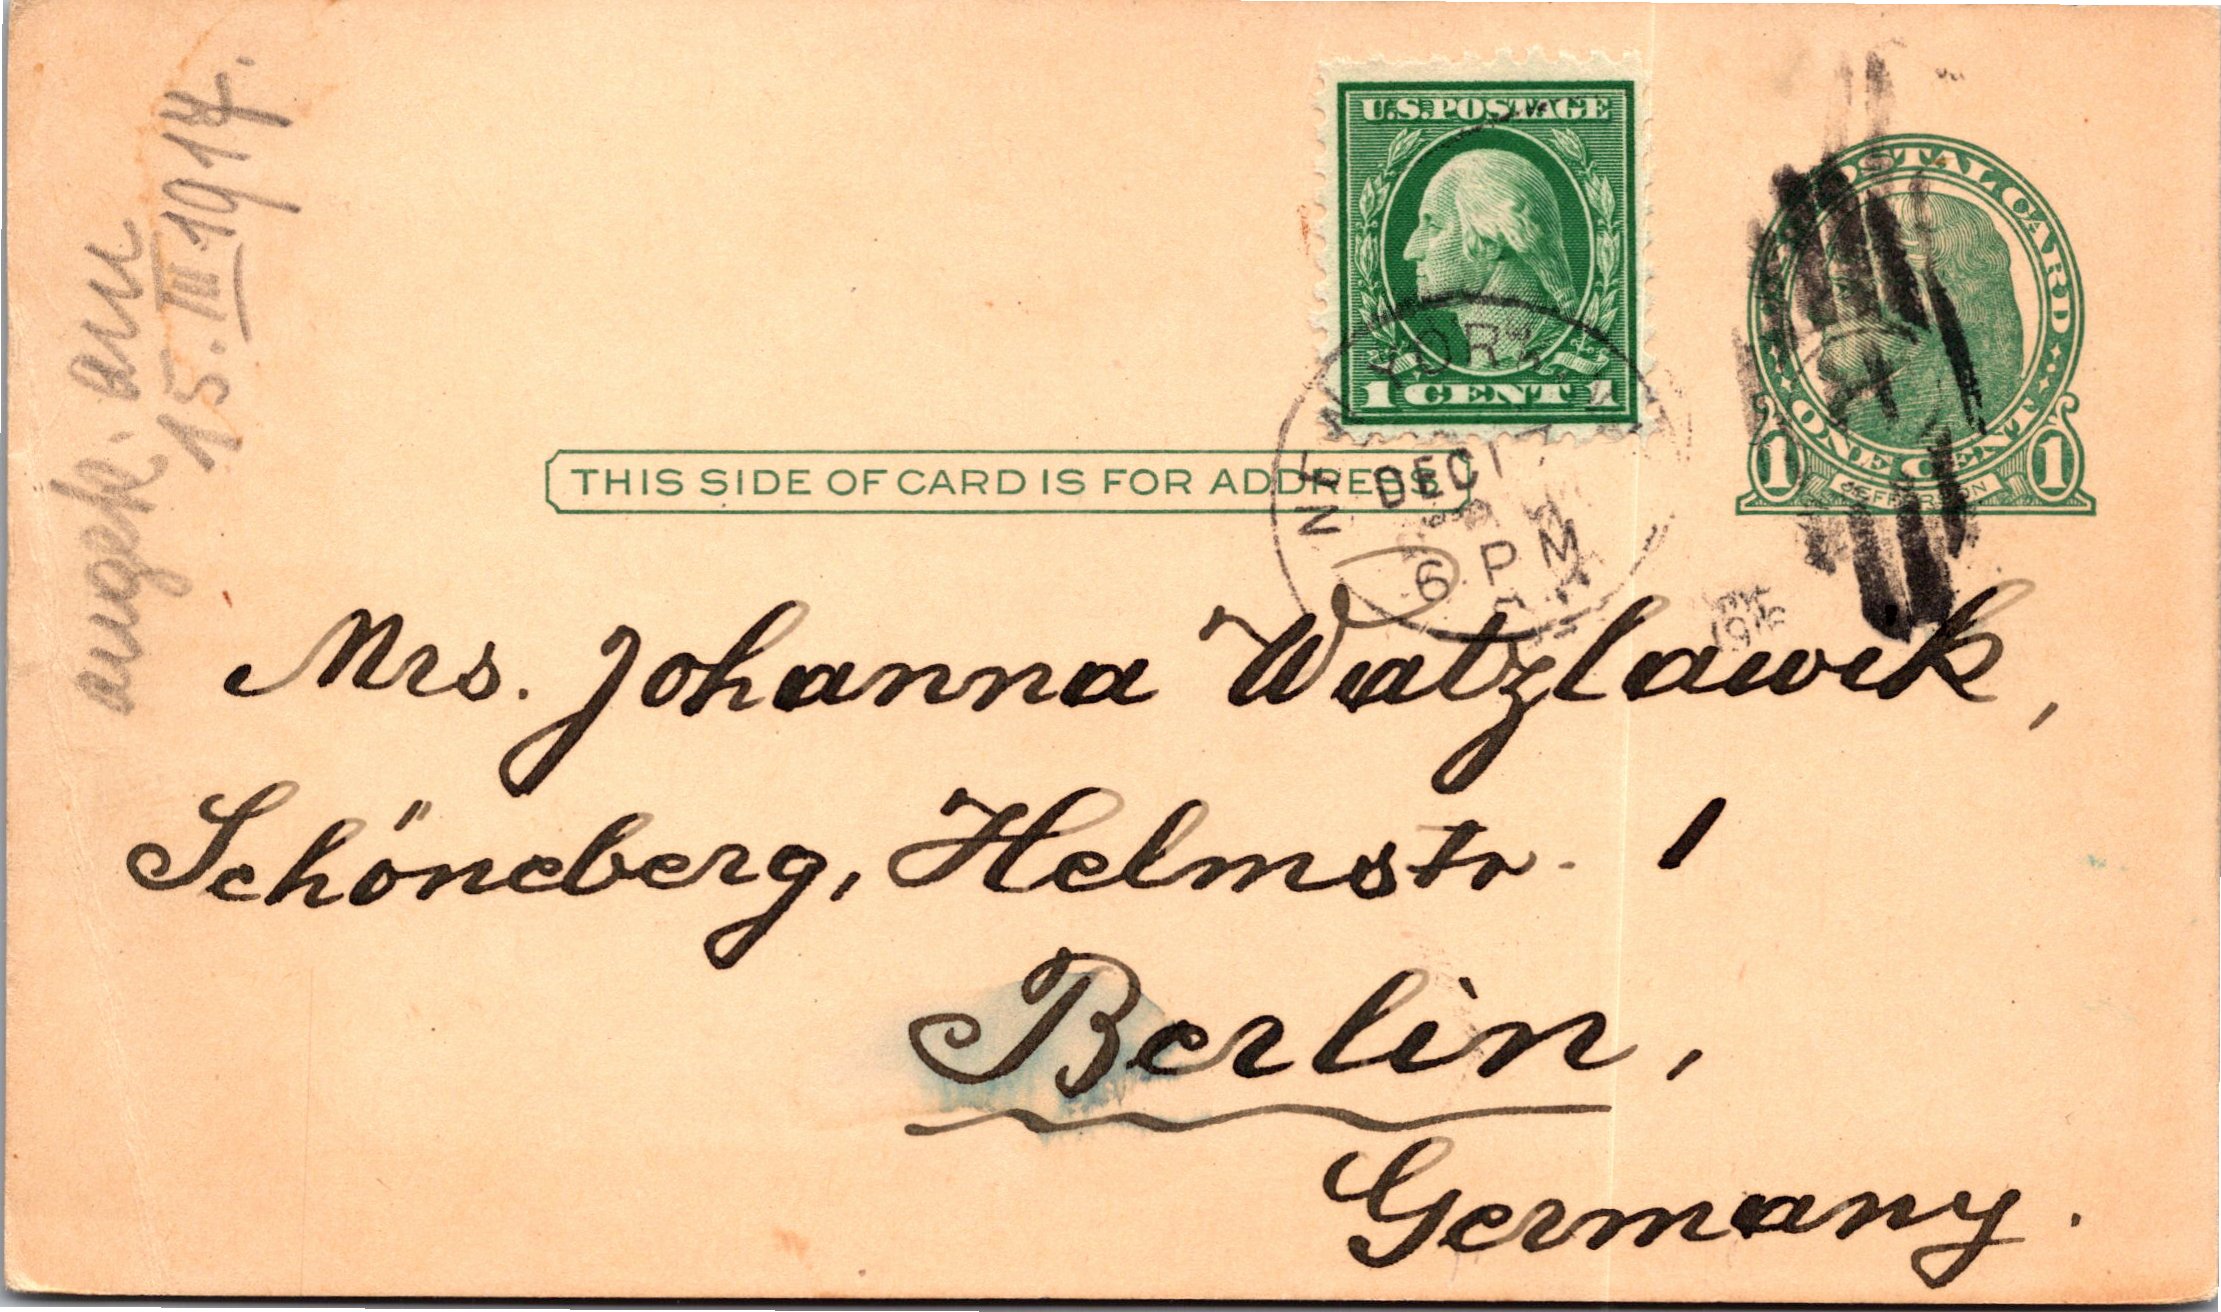 angek. am
15. III 1917.
U.S. POSTAGE
1 CENT 1
POSTAL CARD
1 ONE CENT 1
JEFFERSON
THIS SIDE OF CARD IS FOR ADDRESS
NEW YORK,
DEC 17
6 PM
Mrs. Johanna Watzlawik,
Schöneberg, Helmstr. 1
Berlin,
Germany.